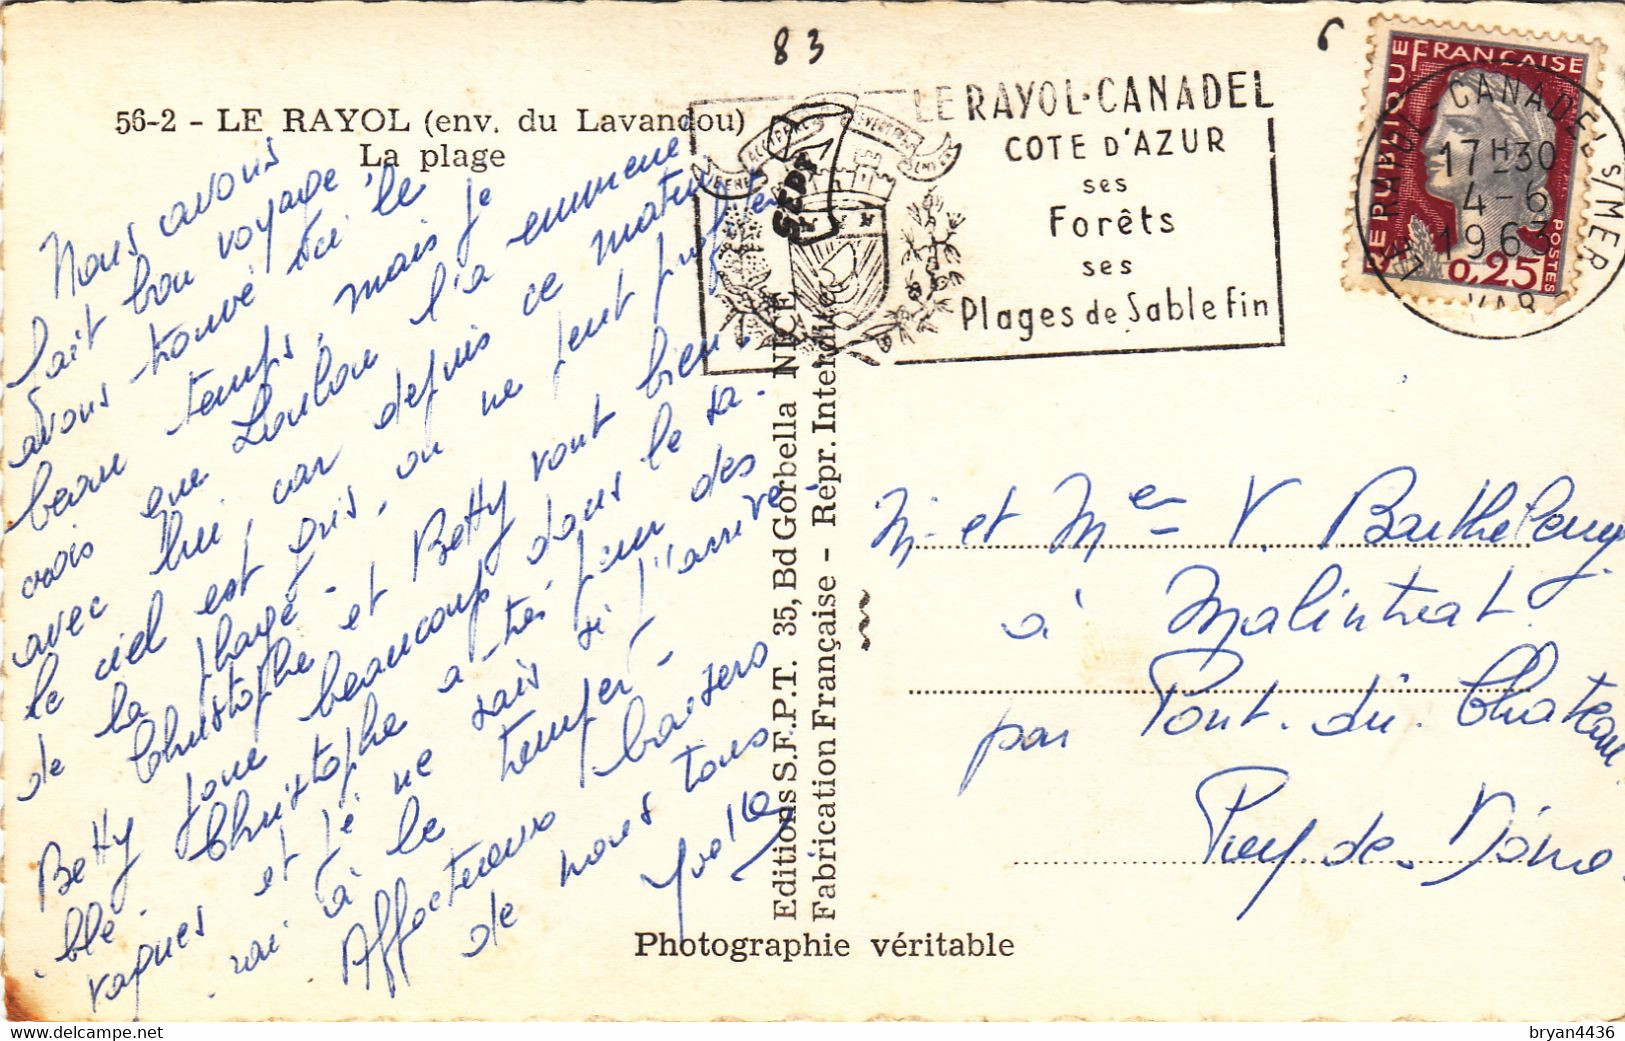 83
6
56-2 - LE RAYOL (env. du Lavandou)
La plage
Nous avons
fait bon voyage
avons trouvé ici le
beau temps, mais je
crois que Loulou l'a emmené
avec lui, car depuis ce matin
le ciel est gris, on ne peut profiter
de la plage.
Christophe et Betty vont bien.
Betty joue beaucoup dans le sa-
blé. Christophe a très peur des
vagues et je ne sais si j'arrive-
rai à le tremper.
Affectueux baisers
de nous tous
LE RAYOL-CANADEL
COTE D'AZUR
ses
Forêts
ses
Plages de Sable Fin
SEPT
REPUBLIQUE FRANÇAISE
POSTES
0,25
LE RAYOL-CANADEL S/MER
17H30
4-6
1963
VAR
Editions S.F.P.T. 35, Bd Gorbella NICE
Fabrication Française - Repr. Interdite
M. et Mme V. Barthelemy
à Malintrat
par Pont-du-Chateau
Puy-de-Dôme
Photographie véritable
delcampe.net
bryan4436